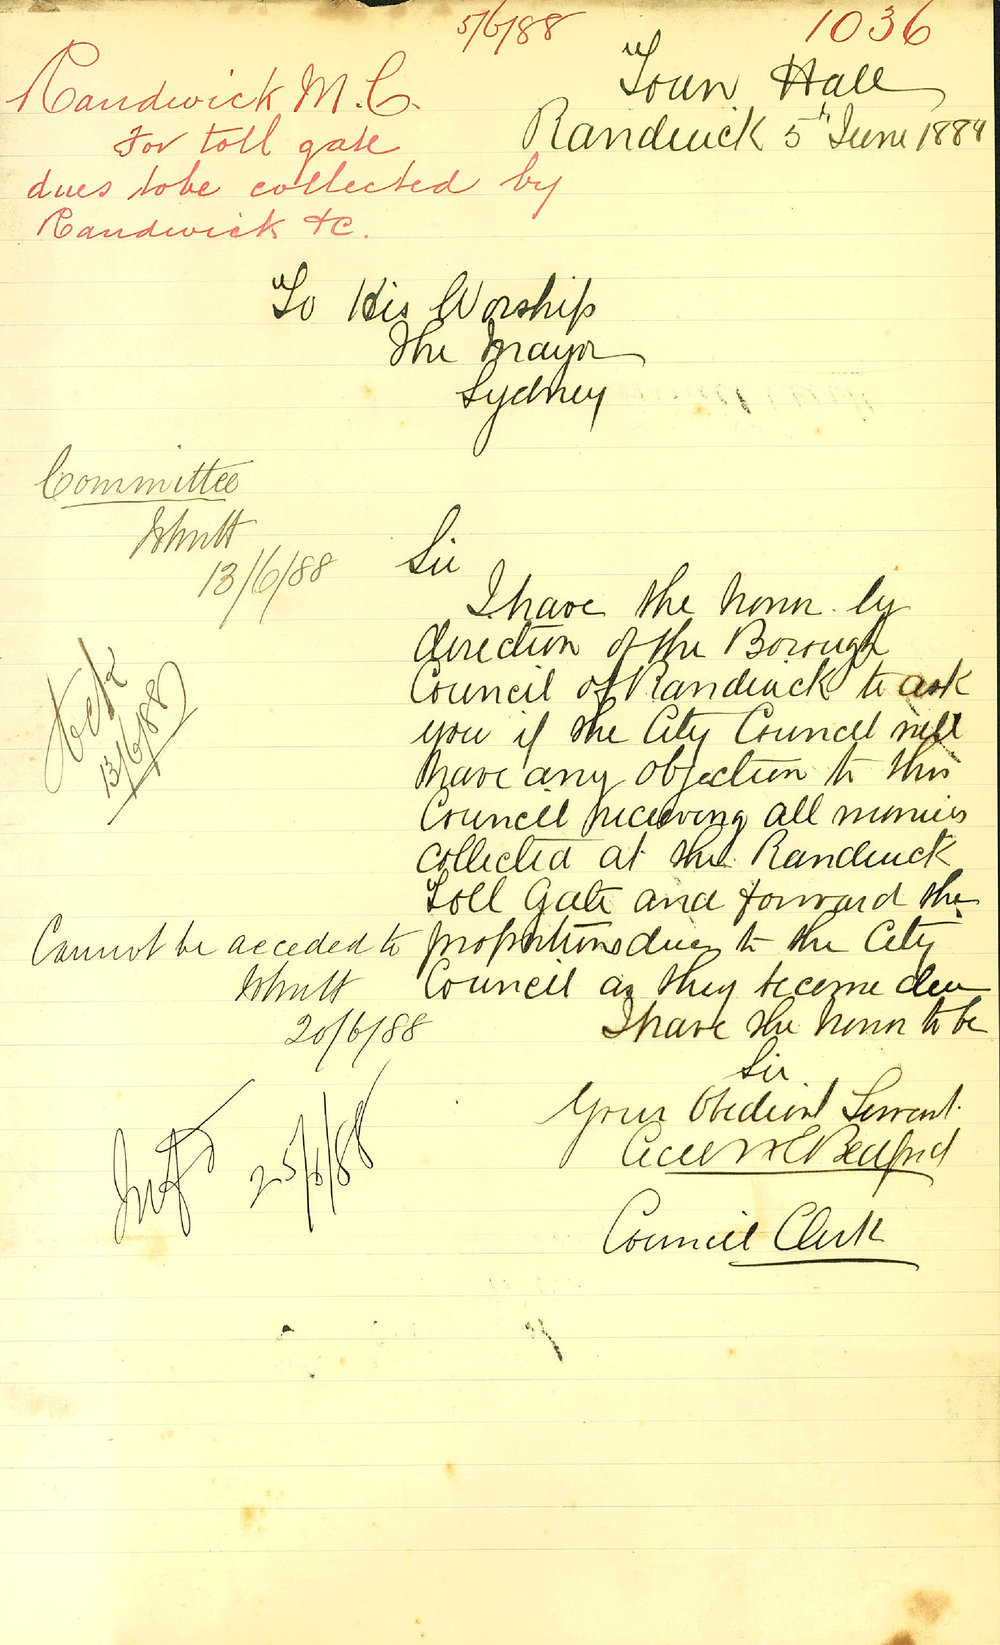 5/6/88
1036
Randwick M.C.
For toll gate
dues to be collected by
Randwick &c.
Town Hall
Randwick 5th June 1888
To His Worship
The Mayor
Sydney
Committee
13/6/88
13/6/88
Sir
I have the honor by
direction of the Borough
Council of Randwick to ask
you if the City Council will
have any objection to this
Council receiving all monies
collected at the Randwick
Toll Gate and forward the
proportions due to the City
Council as they become due
I have the honor to be
Sir
Your Obedient Servant
Bedford
Council Clerk
Cannot be acceded to
20/6/88
25/6/88